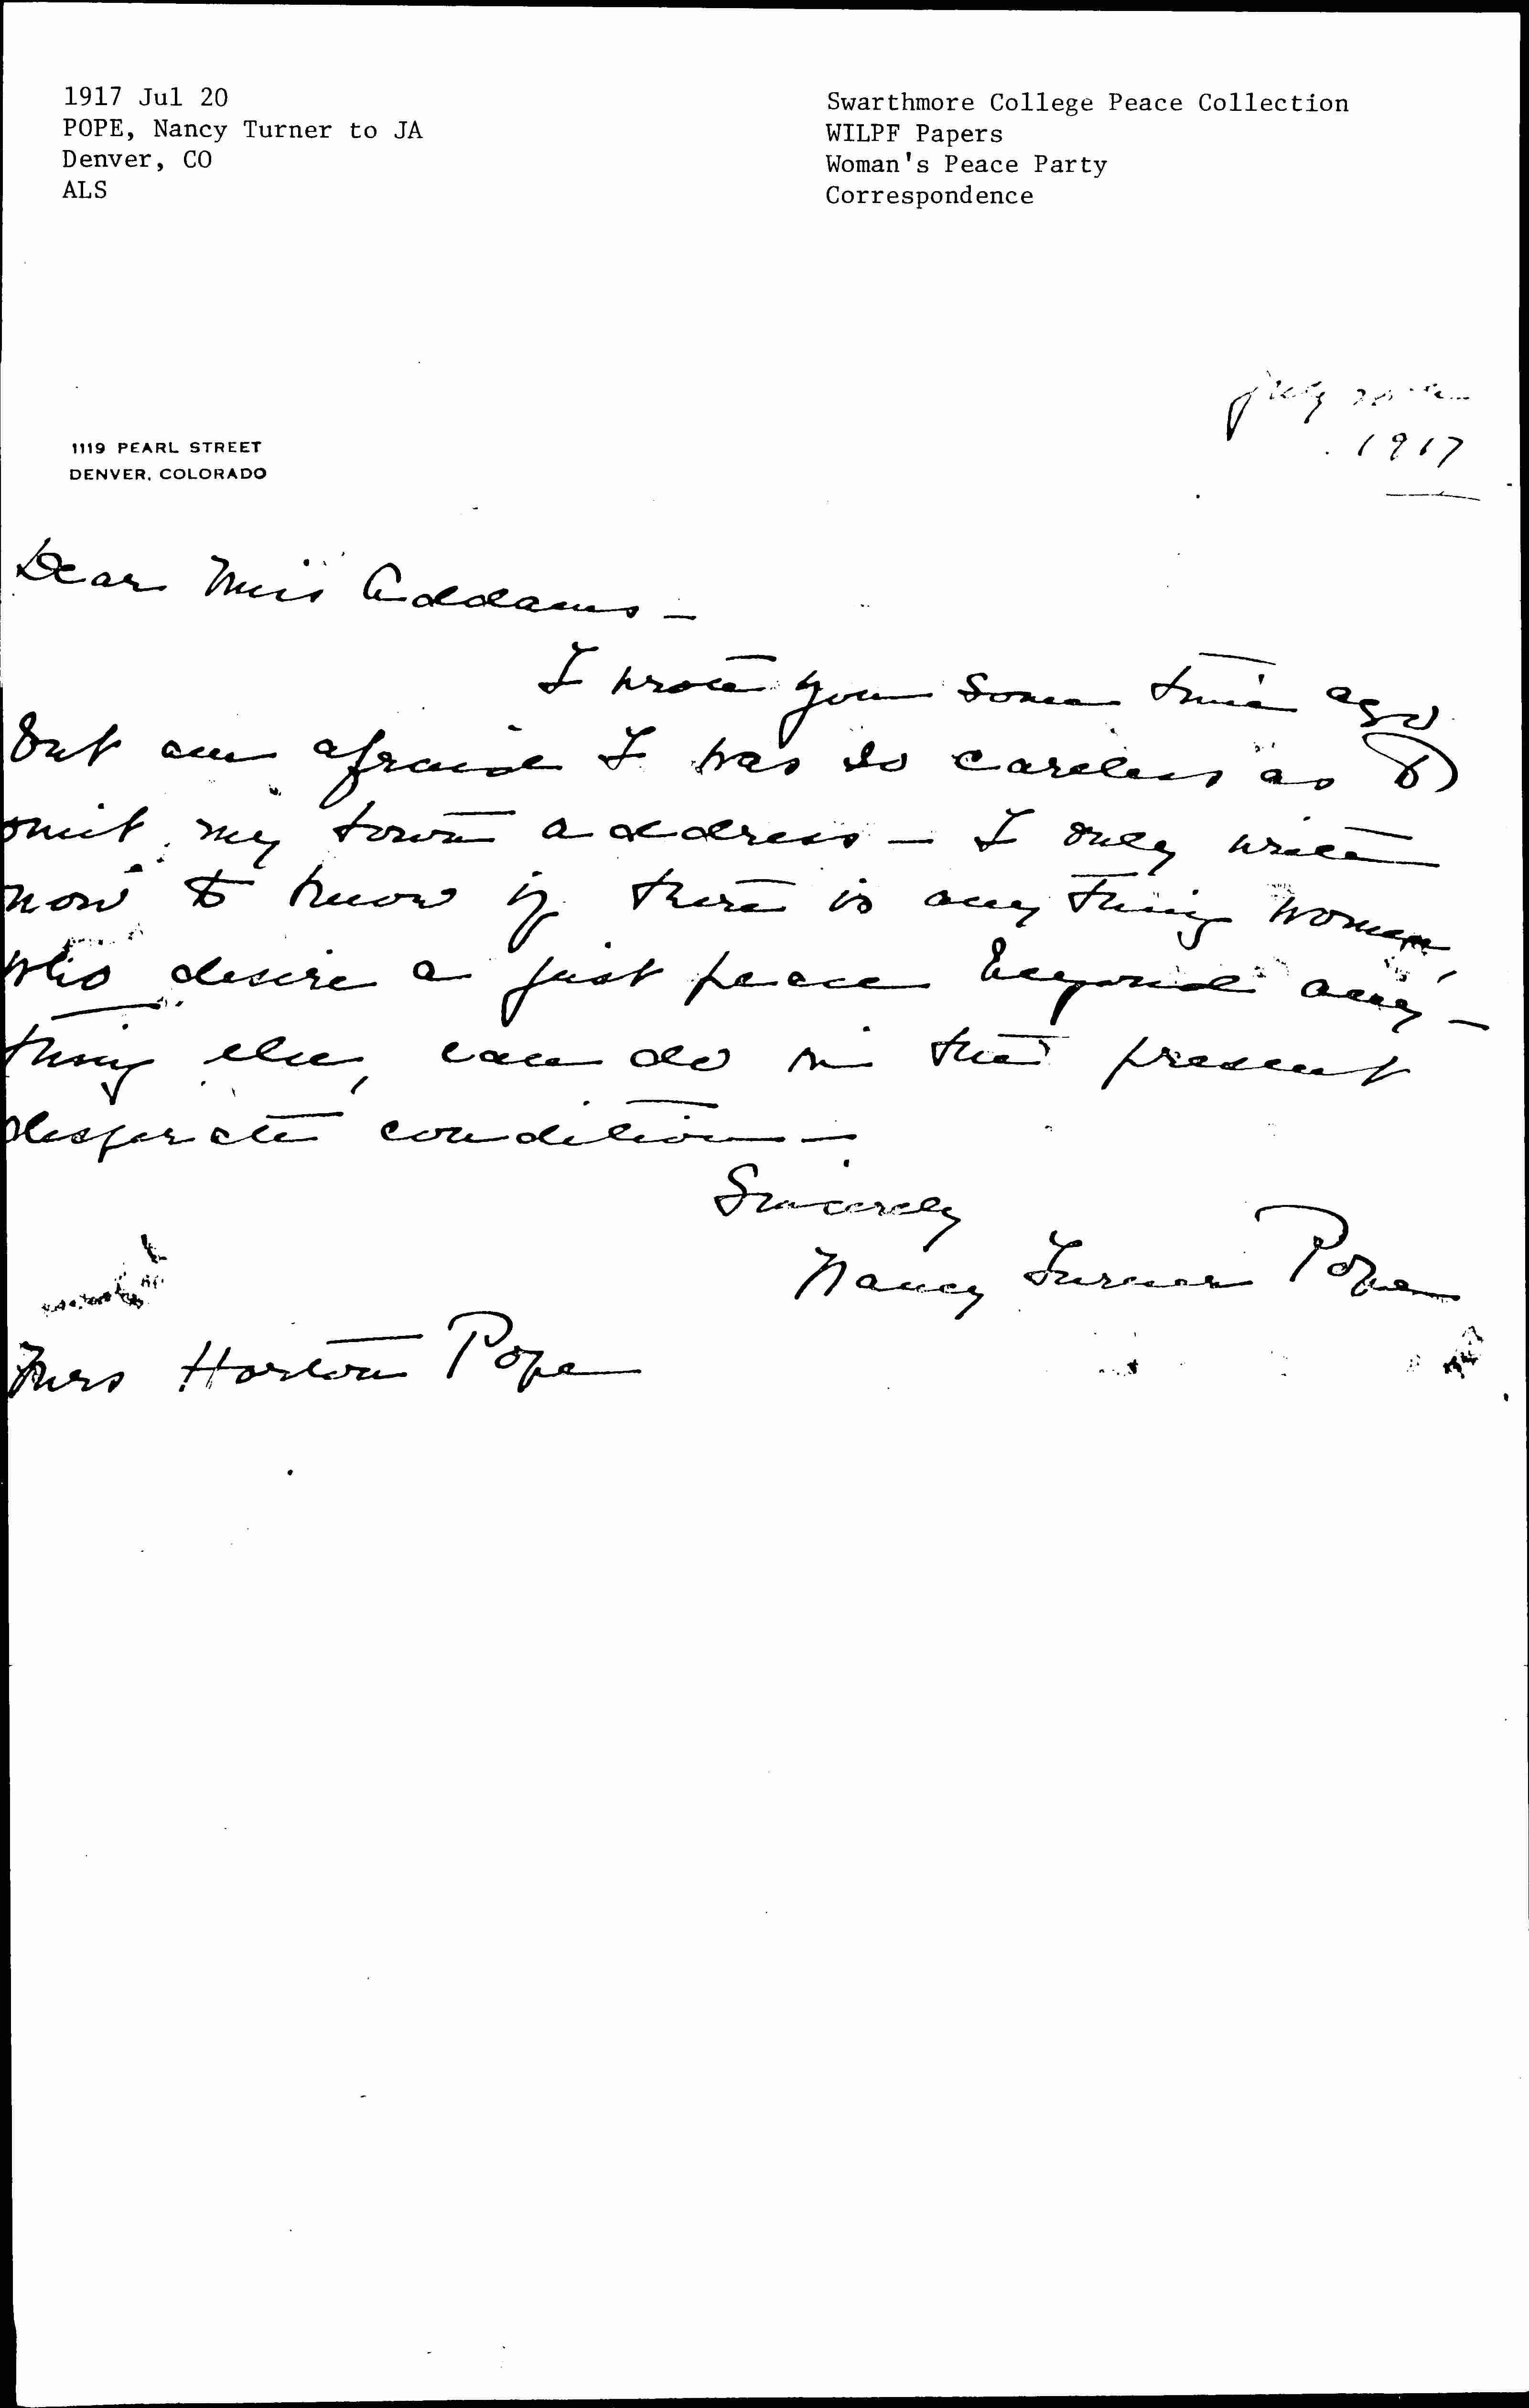 1917 Jul 20
POPE, Nancy Turner to JA
Denver, CO
ALS
Swarthmore College Peace Collection
WILPF Papers
Woman's Peace Party
Correspondence
July 20th
1917
1119 PEARL STREET
DENVER, COLORADO
Dear Miss Addams –
I wrote you some time ago
but am afraid I was so careless as to
omit my town address – I only write
now to know if there is any thing women,
who desire a just peace beyond any-
thing else, can do in the present
desperate condition –
Sincerely
Nancy Turner Pope
Mrs Horton Pope